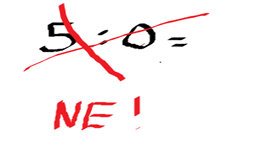 5:0=
NE!